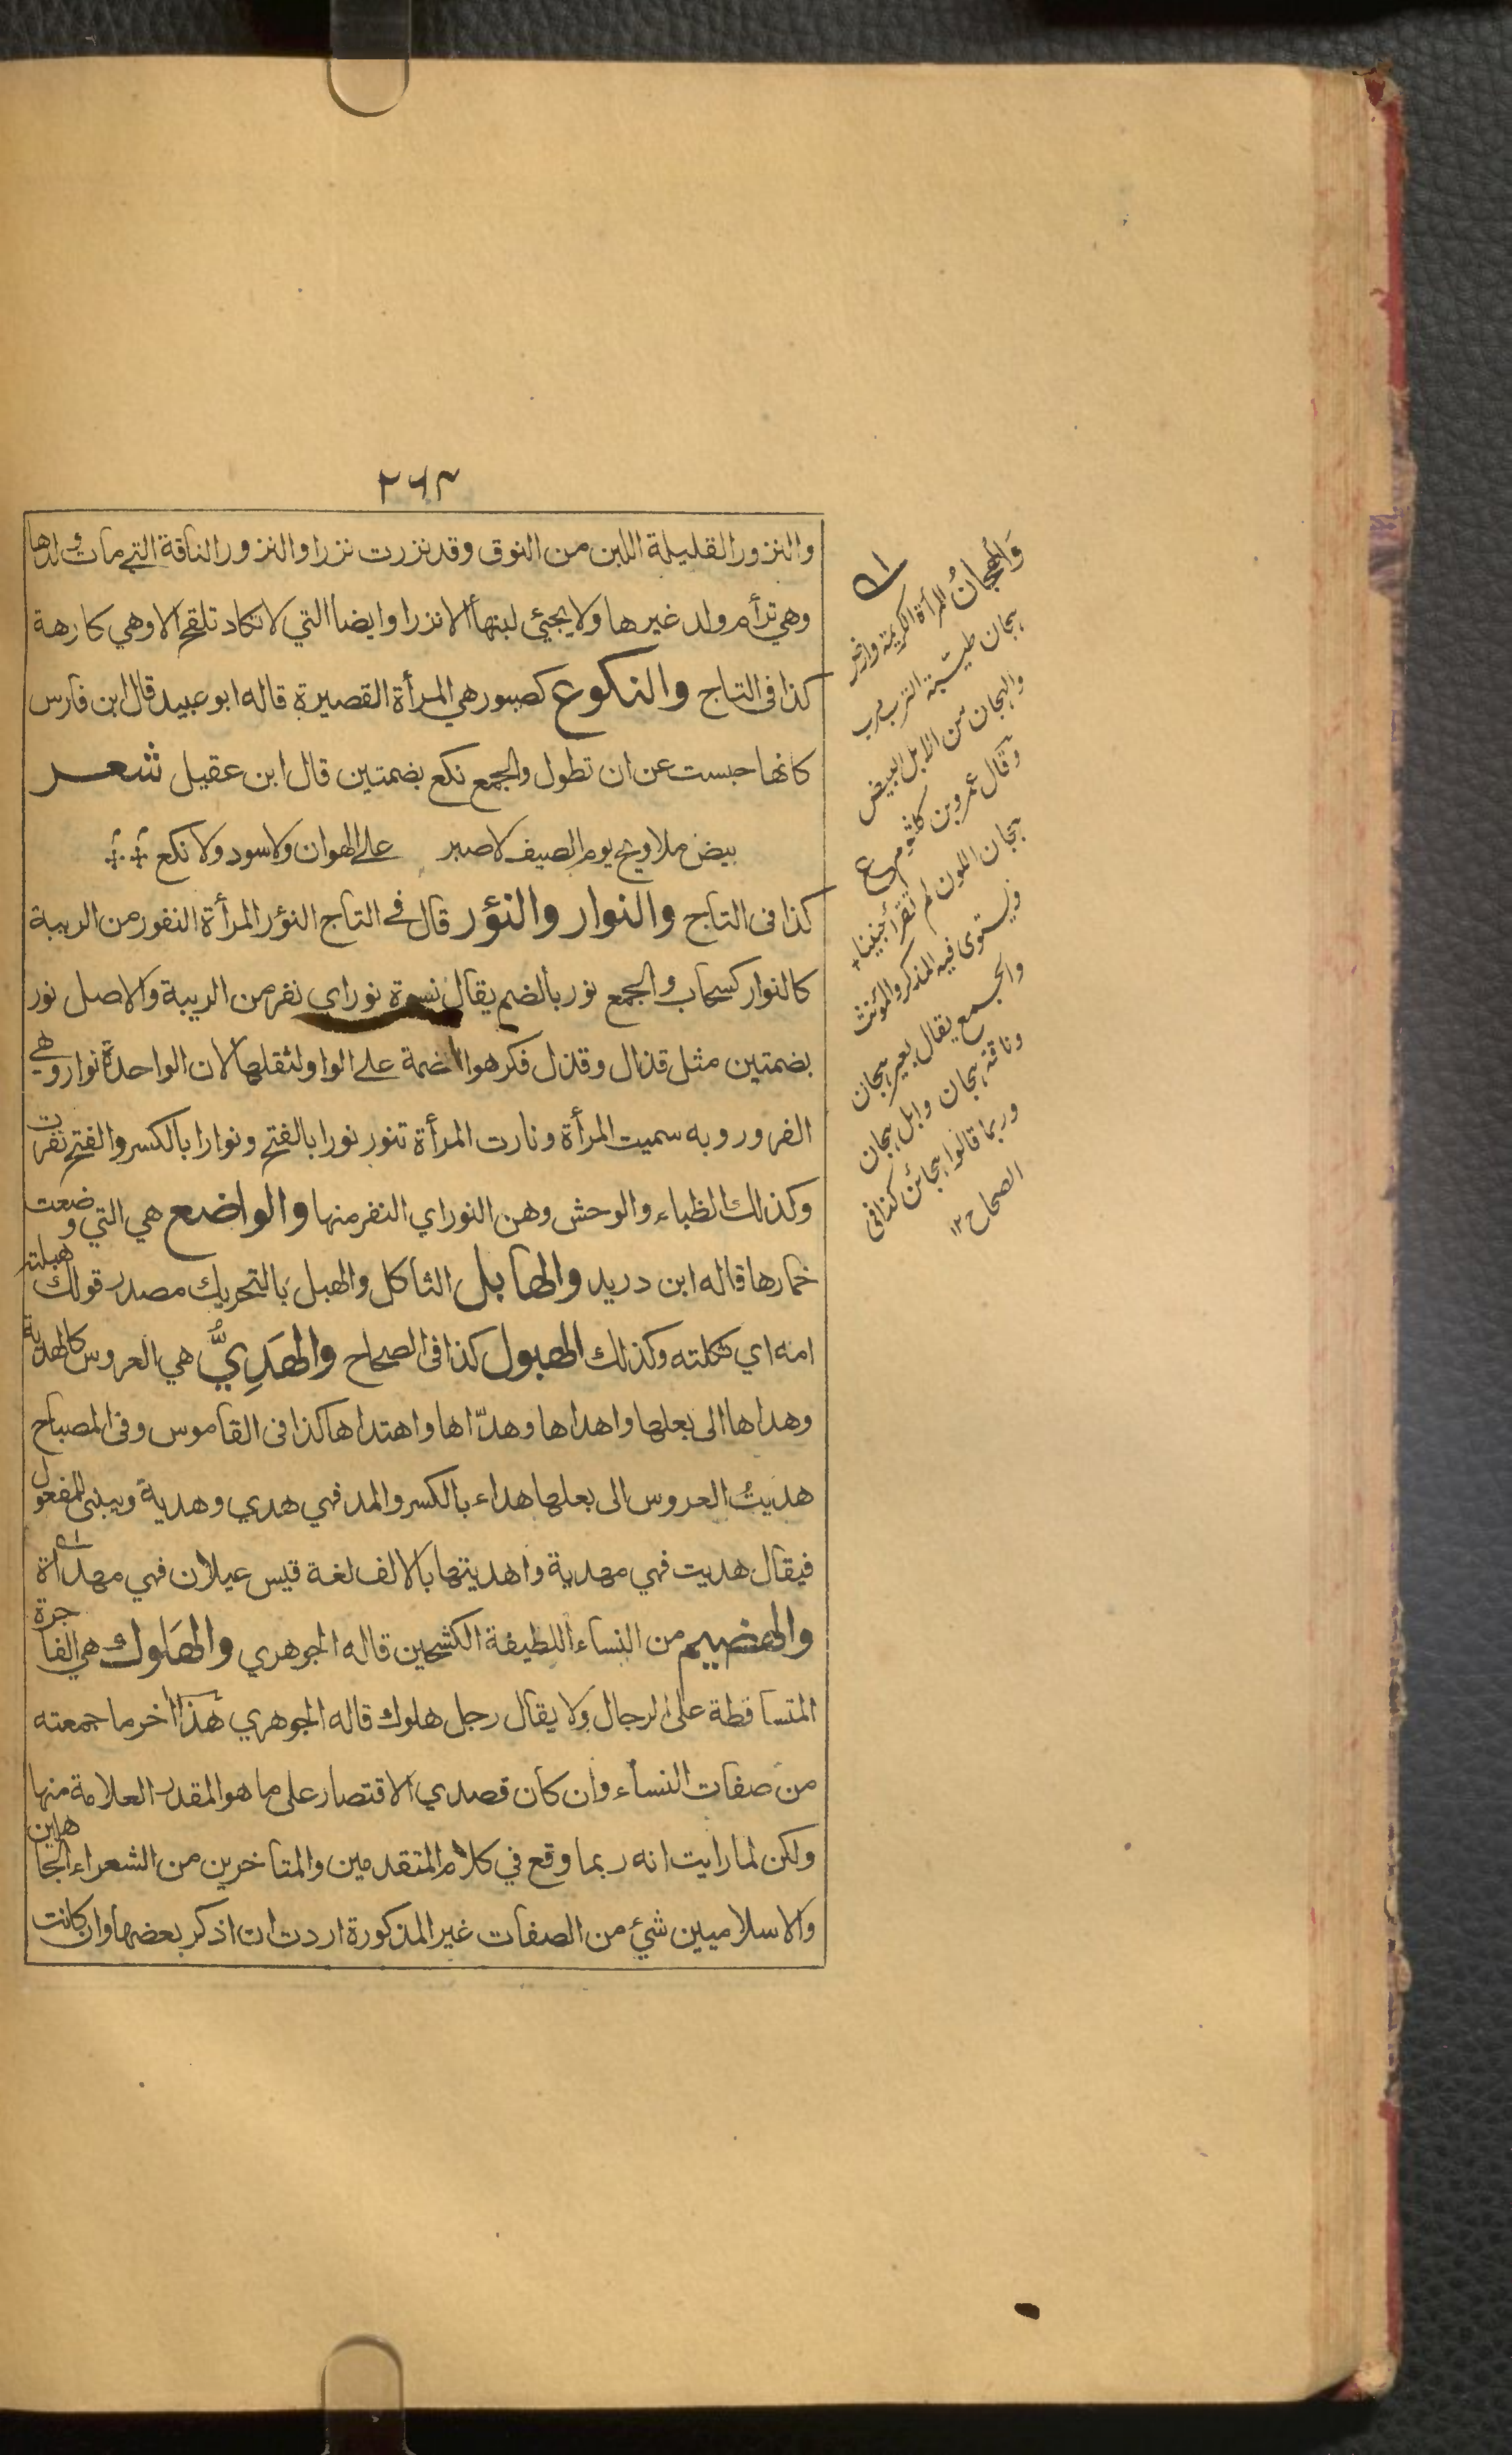 ٢٦٣
والنزور القليلة اللبن من النوق وقد نزرت نزرا والنزور الناقة التي مات ولدها
وهي ترأم ولد غيرها ولا يجيئ لبنها الا نزرا وايضا التي لا تكاد تلقح الا وهي كارهة
كذا فى التاج والنكوع كصبور هي المرأة القصيرة قاله ابو عبيد قال ابن فارس
كانها حبست عن ان تطول والجمع نكع بضمتين قال ابن عقيل شعر
بيض ملاويح يوم الصيف لا صبر على الهوان ولا سود ولا نكع
كذا فى التاج والنوار والنؤر قال في التاج النؤر المرأة النفور من الريبة
كالنوار كسحاب والجمع نور بالضم يقال نسوة نور اي نفر من الريبة والاصل نور
بضمتين مثل قذال وقذل فكرهوا الضمة على الواو لثقلها لان الواحدة نوار وهي
الفرور وبه سميت المرأة ونارت المرأة تنور نورا بالفتح ونوارا بالكسر والفتح نفرت
وكذلك الظباء والوحش وهن النور اي النفر منها والواضع هي التي وضعت
خمارها قاله ابن دريد والهابل الثاكل والهبل بالتحريك مصدر قولك هبلته
امه اي ثكلته وكذلك الهبول كذا فى الصحاح والهَدِيُّ هي العروس كالهدية
وهداها الى بعلها واهداها وهدّاها واهتداها كذا فى القاموس وفى المصباح
هديتُ العروس الى بعلها هداء بالكسر والمد فهي هدي وهدية ويبنى للمفعول
فيقال هديت فهي مهدية واهديتها بالالف لغة قيس عيلان فهي مهداة
والهضيم من النساء اللطيفة الكشحين قاله الجوهري والهَلوك هي الفاجرة
المتساقطة على الرجال ولا يقال رجل هلوك قاله الجوهري هذا اخر ما جمعته
من صفات النساء وان كان قصدي الاقتصار على ما هو المقدر العلامة منها
ولكن لما رايت انه ربما وقع في كلام المتقدمين والمتاخرين من الشعراء الجاهلين
والاسلاميين شيئ من الصفات غير المذكورة اردت ان اذكر بعضها وان كانت
وَالهجانُ المرأة الكريمة وارض
هجان طيبة الترب
والهجان من الابل البيض
وقال عمرو بن كلثوم ع
هجان اللون لم تقرأ جنينا
ويستوى فيه المذكر والمؤنث
والجمع يقال بعير هجان
وناقة هجان وابل هجان
وربما قالوا هجائن كذا فى
الصحاح ١٢